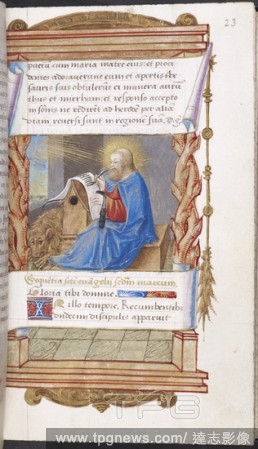 23
puerū cum maria matre eius: et proci
dentes adoraverunt eum et apertis the
sauris suis obtulerūt ei munera aurū
thus et mirrham: et responso accepto
in somnis ne redirēt ad herodē per aliā
viam reversi sunt in regionē suā.
Sequētia scti evāgelii secdm marcum.
Gloria tibi domine
In illo tempore. Recumbentibus
undecim discipulis apparuit
TPG
www.tpgnews.com / 達志影像